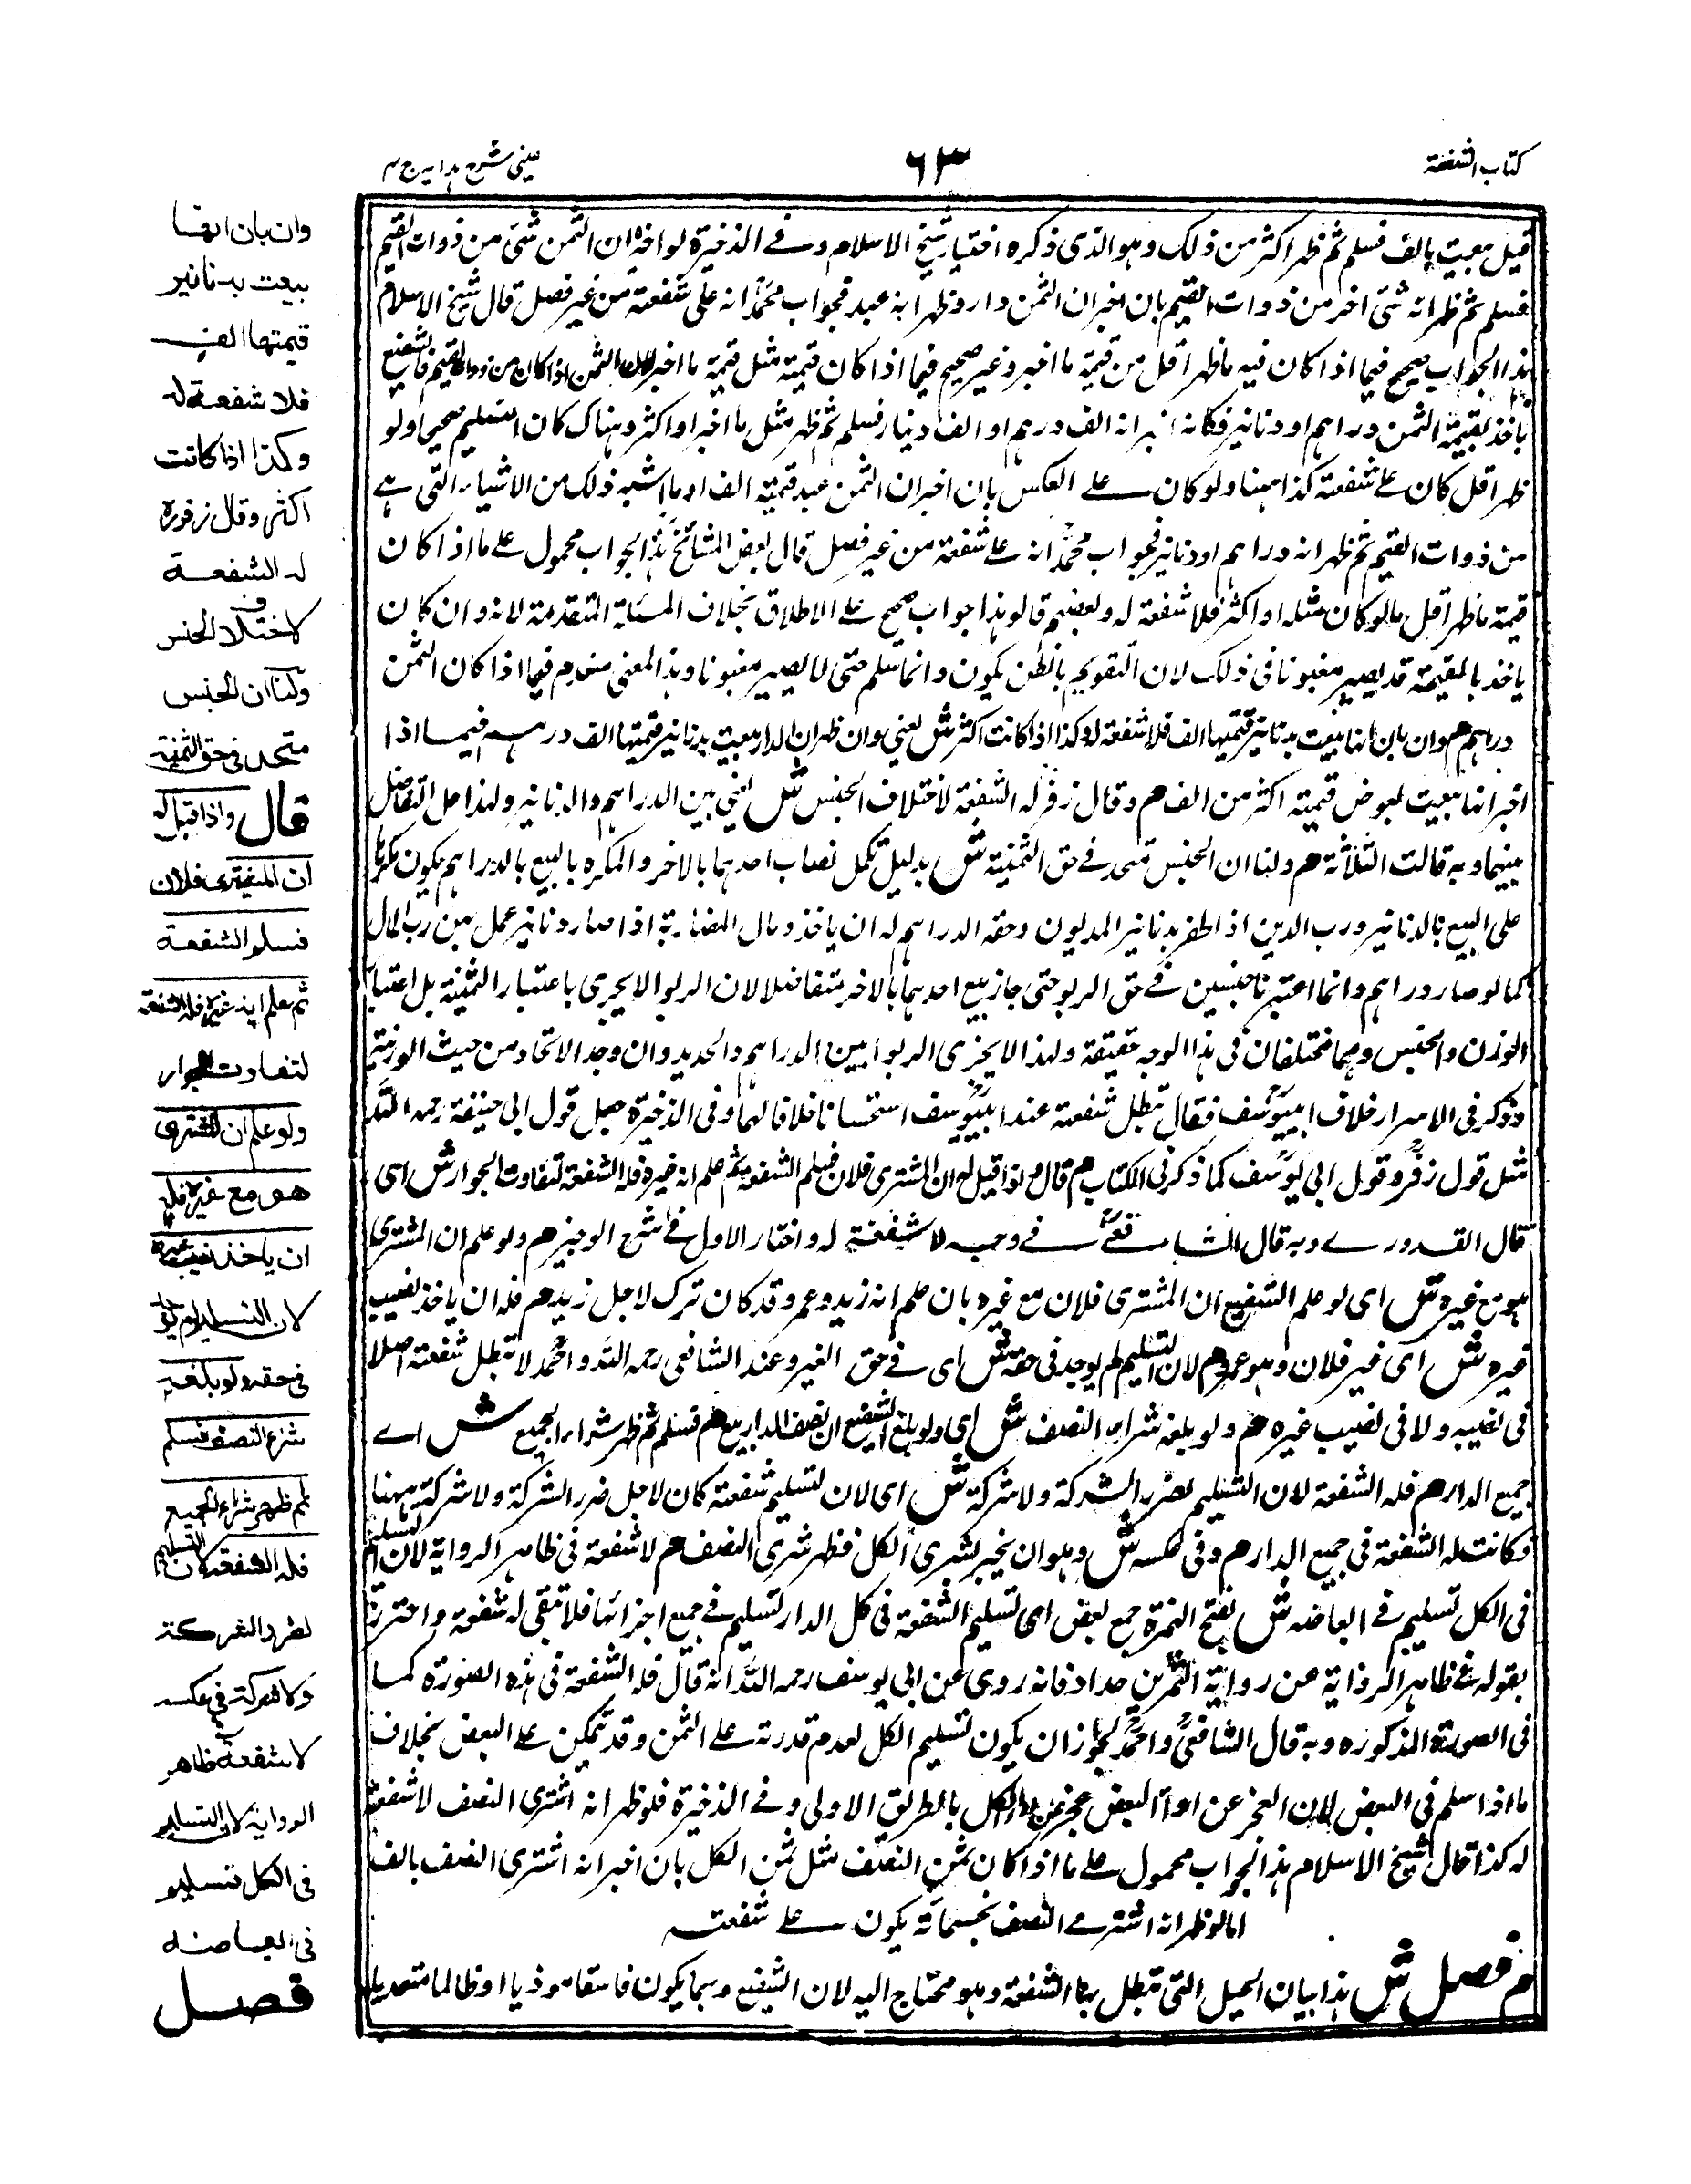 كتاب الشفعة
٦٣
عيني شرح هدايه ج ٣
قيل بيعت بالف فسلم ثم ظهر اكثر من ذلك وهو الذي ذكره اختيار شيخ الاسلام وفي الذخيرة لو اخبر ان الثمن شئ من ذوات القيم
فسلم ثم ظهر انه شئ اخر من ذوات القيم بان اخبر ان الثمن دار وظهر انه عبد فجواب محمد انه على شفعته من غير فصل قال شيخ الاسلام
هذا الجواب صحيح فيما اذا كان فيه ما ظهر اقل من قيمة ما اخبر وغير صحيح فيما اذا كان قيمته مثل قيمة ما اخبر لان الثمن اذا كان من ذوات القيم فالشفيع
ياخذ بقيمة الثمن دراهم او دنانير فكانه اخبر انه الف درهم او الف دينار فسلم ثم ظهر مثل ما اخبر او اكثر وهناك كان التسليم صحيحا ولو
ظهر اقل كان على شفعته كذا ههنا ولو كان على العكس بان اخبر ان الثمن عبد قيمته الف او ما اشبه ذلك من الاشياء التي هي
من ذوات القيم ثم ظهر انه دراهم او دنانير فجواب محمد انه على شفعته من غير فصل قال بعض المشائخ هذا الجواب محمول على ما اذا كان
قيمة ما ظهر اقل مالو كان مثله او اكثر فلا شفعة له وبعضهم قالو هذا جواب صحيح على الاطلاق بخلاف المسئلة المتقدمة لانه وان كان
ياخذ بالقيمة قد يصير مغبونا في ذلك لان التقويم بالظن يكون وانما سلم حتى لا يصير مغبونا وهذا المعنى منعدم فيما اذا كان الثمن
دراهم هم وان بان انها بيعت بدنانير قيمتها الف فلا شفعة له وكذا اذا كانت اكثر ش يعني وان ظهر ان الدار بيعت بدنانير قيمتها الف درهم فيما اذا
اخبر انها بيعت بعوض قيمته اكثر من الف م وقال زفر له الشفعة لاختلاف الجنس ش يعني بين الدراهم والدنانير ولهذا حل التفاضل
بينهما وبه قالت الثلاثة م ولنا ان الجنس متحد في حق الثمنية ش بدليل تكمل نصاب احدهما بالاخر والمكره بالبيع بالدراهم يكون مكرها
على البيع بالدنانير ورب الدين اذا ظفر بدنانير المديون وحقه الدراهم له ان ياخذ ومال المضاربة اذا صار دنانير عمل من رب المال
كما لو صار دراهم وانما اعتبرنا جنسين في حق الربو حتى جاز بيع احدهما بالاخر متفاضلا لان الربوا لا يجري باعتبار الثمنية بل اعتبار
الوزن والجنس وهما مختلفان في هذا الوجه حقيقة ولهذا لا يجري الربوا بين الدراهم والحديد وان وجد الاتحاد من حيث الوزنية
وذكر في الاسرار خلاف ابي يوسف فقال تبطل شفعته عند ابي يوسف استحسانا خلافا لهما وفي الذخيرة جعل قول ابي حنيفة رحمه الله
مثل قول زفر وقول ابي يوسف كما ذكر في الكتاب م قال واذا قيل له ان المشتري فلان فسلم الشفعة ثم علم انه غيره فله الشفعة لتفاوت الجوار ش اي
قال القدوري وبه قال الشافعي في وجه لا شفعة له واختار الاول في شرح الوجيز م ولو علم ان المشتري
هو مع غيره ش اي لو علم الشفيع ان المشتري فلان مع غيره بان علم انه زيد وعمرو قد كان ترك لاجل زيد م فله ان ياخذ نصيب
غيره ش اي غير فلان وهو عمرو م لان التسليم لم يوجد في حقه ش اي في حق الغير وعند الشافعي رحمه الله واحمد لا تبطل شفعته اصلا
في نصيبه ولا في نصيب غيره م ولو بلغه شراء النصف ش اي ولو بلغ الشفيع ان نصف الدار بيع م فسلم ثم ظهر شراء الجميع ش اے
جميع الدار م فله الشفعة لان التسليم لضرر الشركة ولا شركة ش اي لان تسليم شفعته كان لاجل ضرر الشركة ولا شركة ههنا
فكانت له الشفعة في جميع الدار م وفي عكسه ش وهو ان يخبر بشرى الكل فظهر شرى النصف م لا شفعة في ظاهر الرواية لان التسليم
في الكل تسليم في ابعاضه ش بفتح الهمزة جمع بعض اي تسليم الشفعة في كل الدار تسليم في جميع اجزائها فلا تبقى له شفعة واحترز
بقوله في ظاهر الرواية عن رواية حداد فانه روى عن ابي يوسف رحمه الله انه قال فله الشفعة في هذه الصورة كما
في الصورة المذكورة وبه قال الشافعي واحمد لجواز ان يكون تسليم الكل لعدم قدرته على الثمن وقد تمكين على البعض بخلاف
ما اذا سلم في البعض لان العجز عن اداء البعض عجز عن الكل بالطريق الاولى وفي الذخيرة فلو ظهر انه اشترى النصف لا شفعة
له كذا قال شيخ الاسلام هذا الجواب محمول على ما اذا كان ثمن النصف مثل ثمن الكل بان اخبر انه اشترى النصف بالف
اما لو ظهر انه اشترى النصف بخمسمائة يكون على شفعته
م فصل ش هذا بيان الحيل التي تبطل بها الشفعة وهو محتاج اليه لان الشفيع ربما يكون فاسقا موذيا او ظالما متعديا
وان بان انها
بيعت بدنانير
قيمتها الف
فلا شفعة له
وكذا اذا كانت
اكثر وقال زفر
له الشفعة
لاختلاف الجنس
ولنا ان الجنس
متحد في حق الثمنية
قال واذا قيل له
ان المشتري فلان
فسلم الشفعة
ثم علم انه غيره فله الشفعة
لتفاوت الجوار
ولو علم ان المشتري
هو مع غيره فله
ان ياخذ نصيب غيره
لان التسليم لم يوجد
في حقه ولو بلغه
شراء النصف فسلم
ثم ظهر شراء الجميع
فله الشفعة لان التسليم
لضرر الشركة
ولا شركة في عكسه
لا شفعة في ظاهر
الرواية لان التسليم
في الكل تسليم
في ابعاضه
فصل